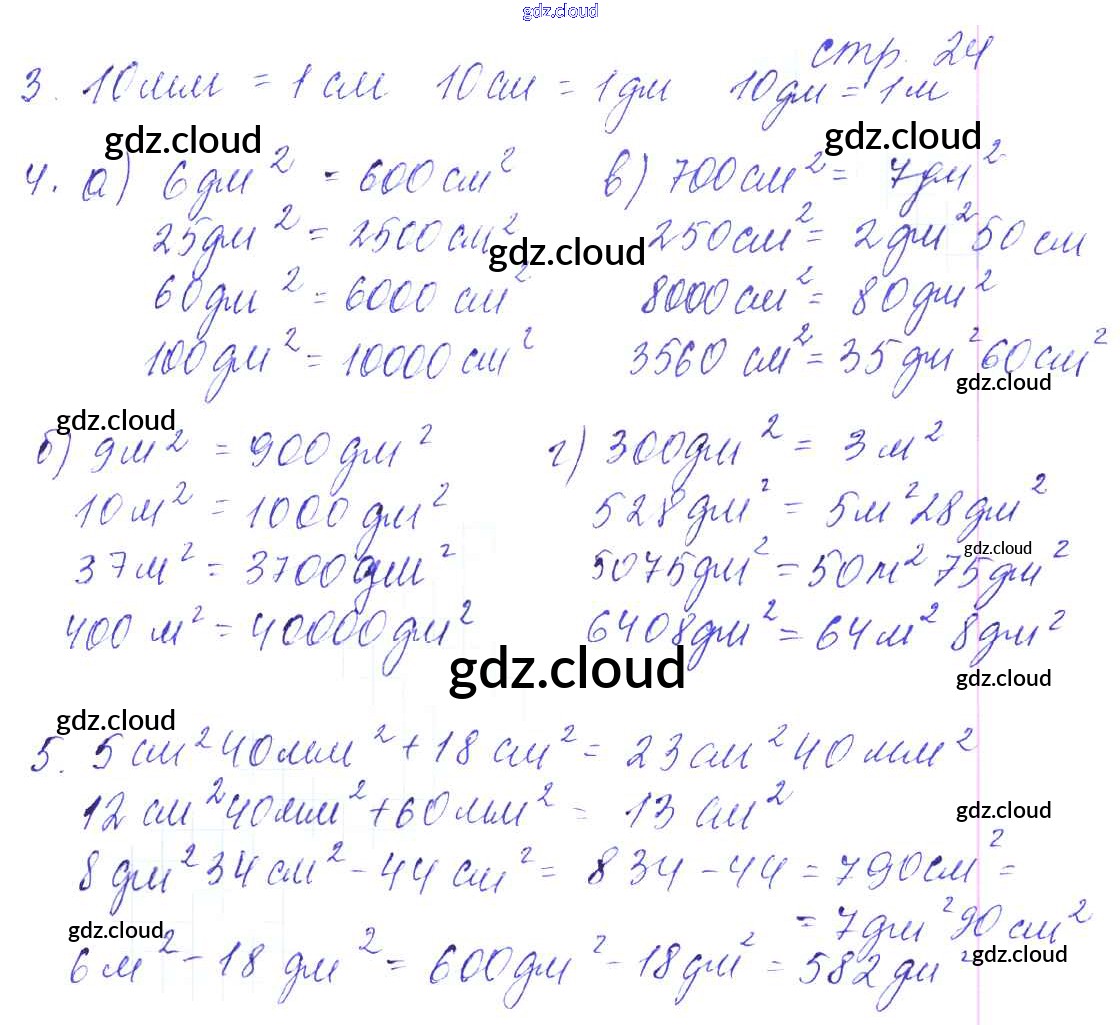 gdz.cloud
стр. 24
3. 10мм = 1 см 10см = 1дм 10дм = 1м
gdz.cloud gdz.cloud
4. а) 6дм² = 600см² в) 700см² = 7дм²
25дм² = 2500см² 250см² = 2дм²50см
gdz.cloud
60дм² = 6000 см² 8000см² = 80дм²
100дм² = 10000см² 3560 см² = 35дм²60см²
gdz.cloud
gdz.cloud
б) 9м² = 900дм² г) 300дм² = 3м²
10м² = 1000дм² 528дм² = 5м²28дм²
gdz.cloud
37м² = 3700дм² 5075дм² = 50м² 75дм²
400 м² = 40000дм² 6408дм² = 64м² 8дм²
gdz.cloud gdz.cloud
gdz.cloud
5. 5см²40мм² + 18 см² = 23см²40мм²
12см²40мм² + 60мм² = 13 см²
gdz.cloud
8дм²34см² - 44см² = 834 - 44 = 790см² =
= 7дм²90см²
gdz.cloud gdz.cloud
6м² - 18 дм² = 600дм² - 18дм² = 582дм²